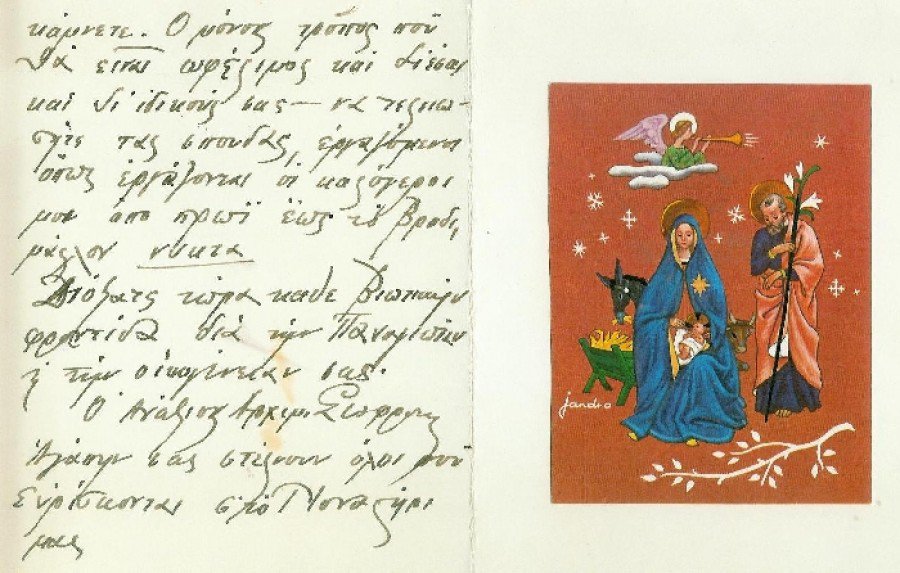 κάμνετε. Ο μόνος τρόπος που
θα είναι ωφέλιμος και δι' εσας
και δι' ιδικούς σας — να τελειω-
σητε τας σπουδας, εργαζόμενοι
όπως εργάζονται οι καλόγεροι
μου απο πρωί έως το βραδυ,
μάλλον νύκτα
Διόξατε τώρα καθε βιωτικην
φροντίδα διά την
ή την οικογένειαν σας.
Ο Ανάξιος Αρχιμ.
Αγάπην σας στέλνουν όλοι που
ευρίσκονται στο Μοναστήρι
μας
jandro